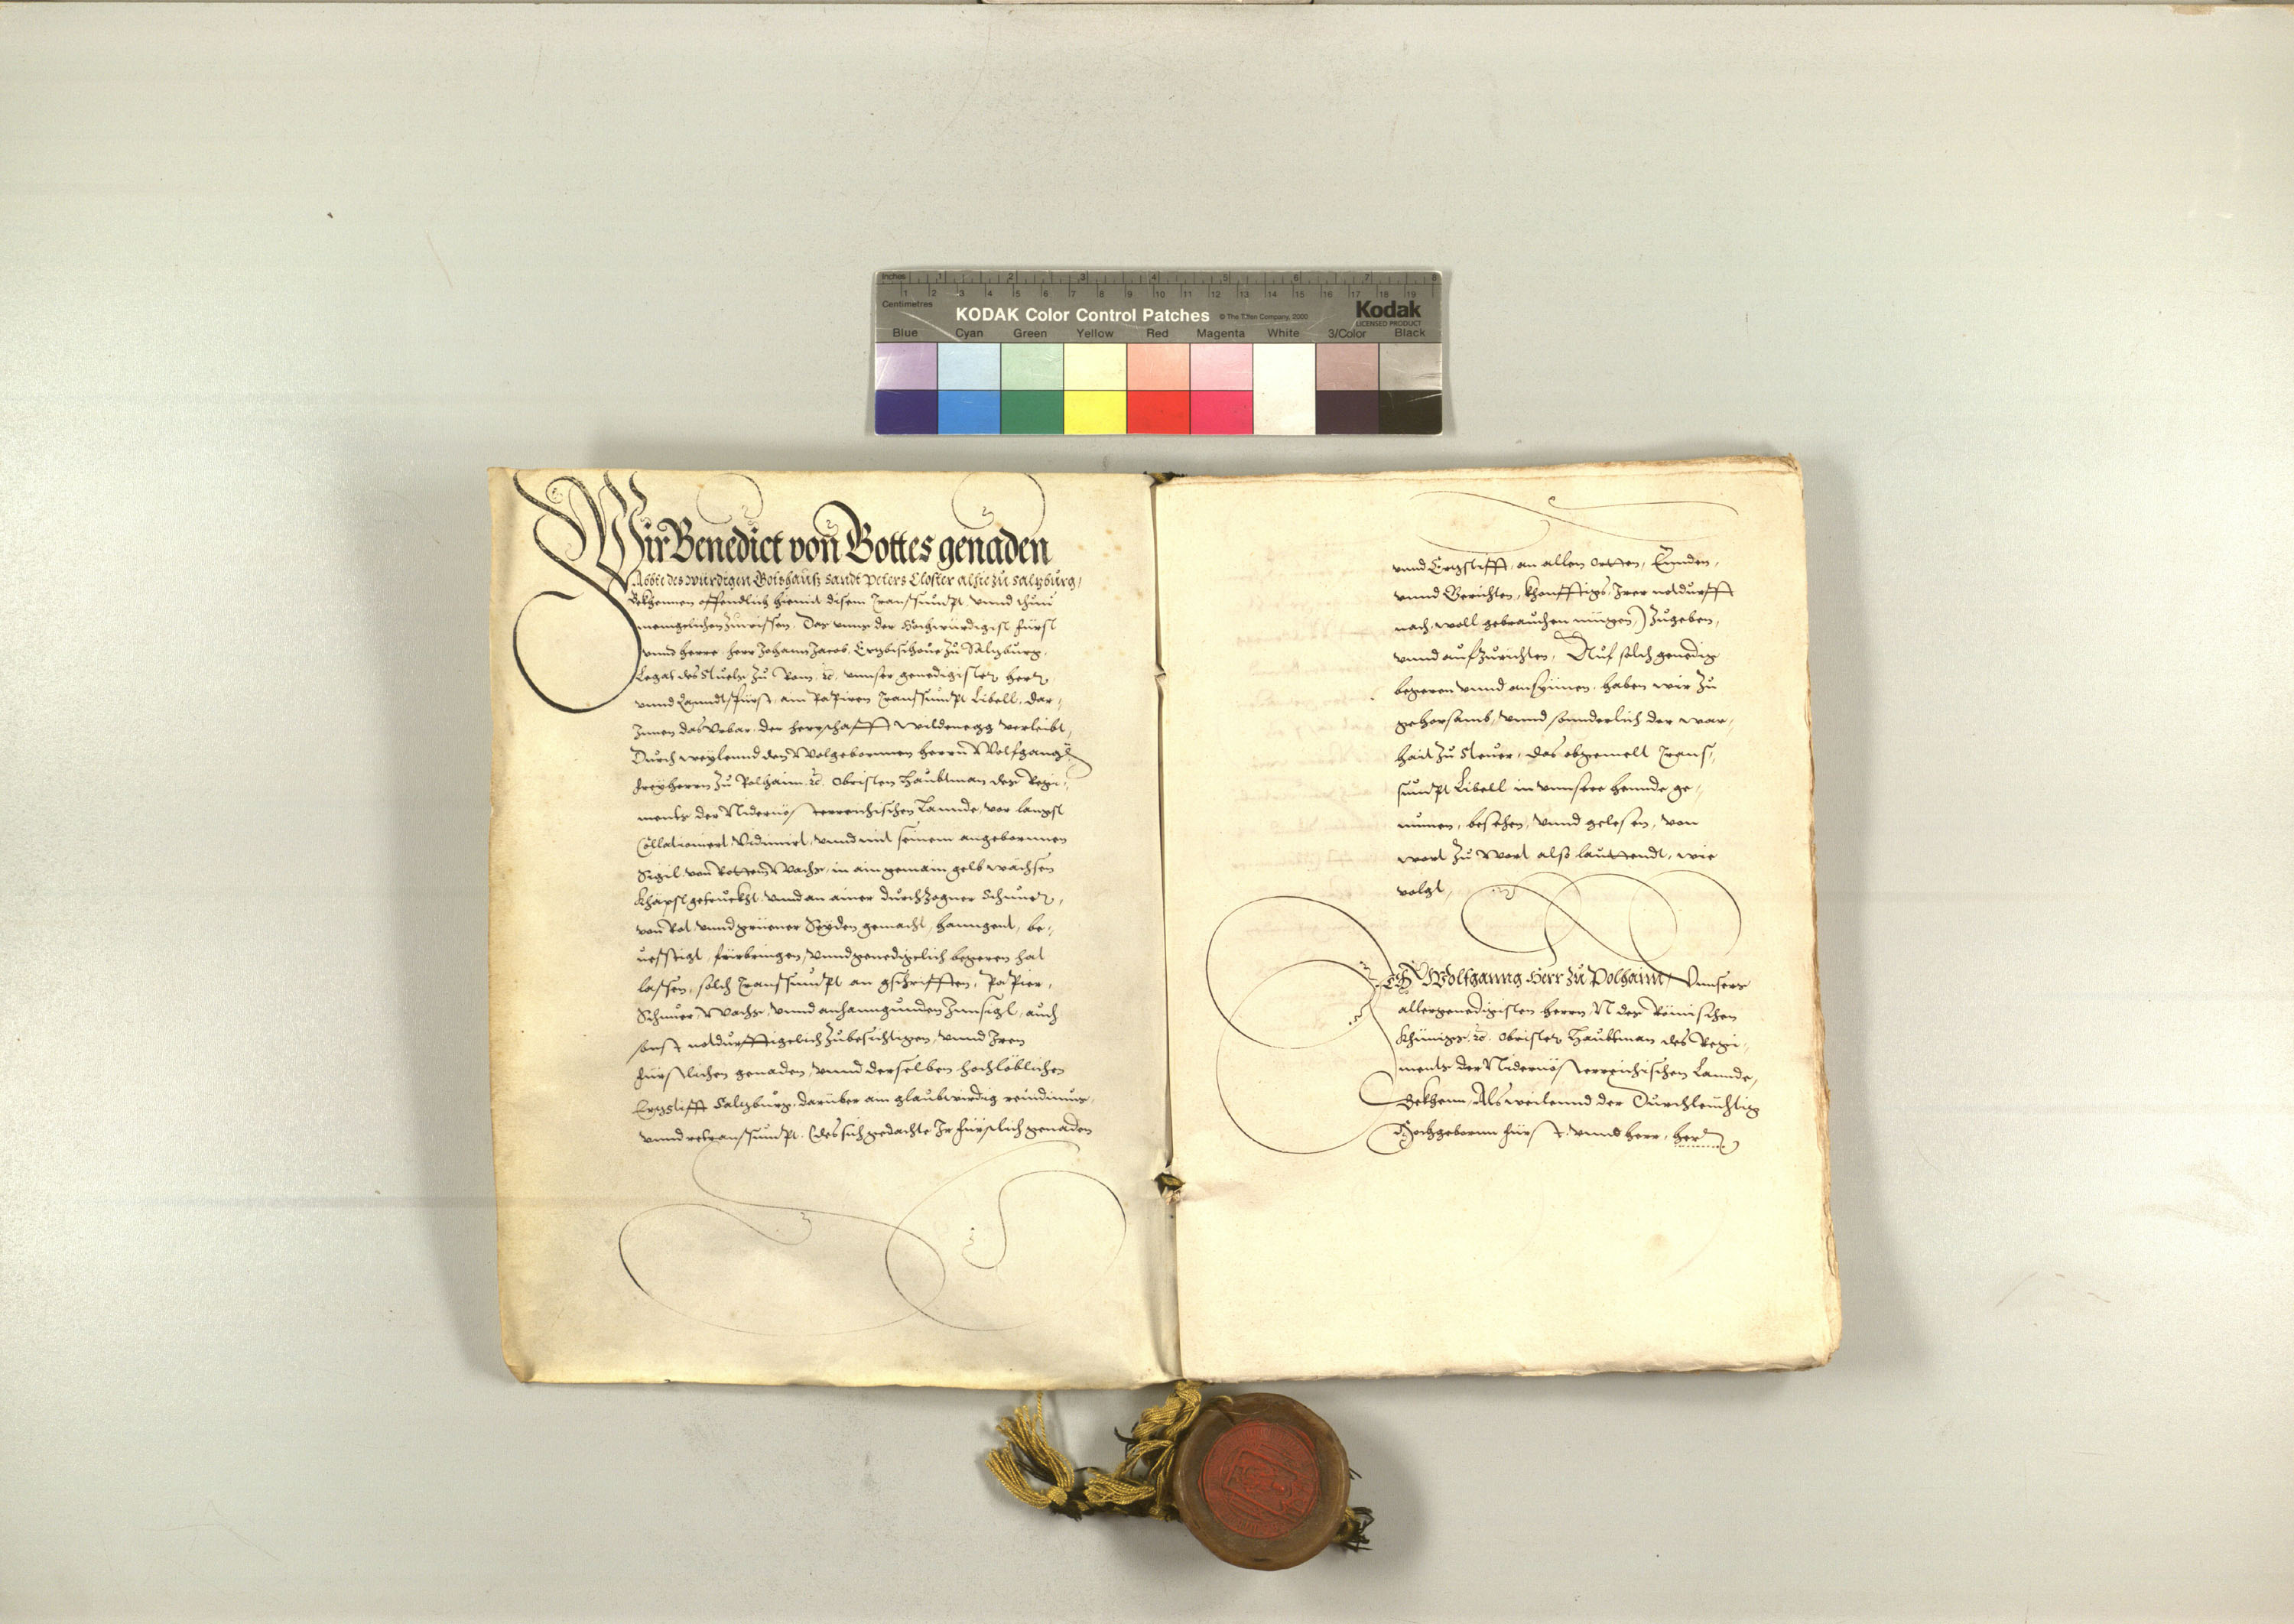 Inches 1 2 3 4 5 6 7 8
1 2 3 4 5 6 7 8 9 10 11 12 13 14 15 16 17 18 19
Centimetres
KODAK Color Control Patches © The Tiffen Company, 2000 Kodak
LICENSED PRODUCT
Blue Cyan Green Yellow Red Magenta White 3/Color Black
Wir Benedict von Gottes genaden
Abbte des würdigen Gotshauß sandt Peters Closter alhie zu Salzburg/
Bekhennen offendlich hiemit disem Transsumpt vnnd thun
menigelichen zuwissen. Das vnns der Hochwürdigist Fürst
vnnd herre, herr Johann Jacob, Ertzbischoue zu Saltzburg,
Legat des Stuels zu Rom, etc. vnnser genedigister herr
vnnd Lanndtsfürst, ain Papiren Transsumpt Libell, dar,
Innen das Vrbar, der herrschafft Wildenegg verleibt,
Durch weylennd den Wolgebornnen herrn Wolfganng
Freyherrn zu Polhaim etc. Obristen Haubtman des Regi,
ments der Niderösterreichischen Lannde, vor langst
Collationiert, Vidimirt, vnnd mit seinem angebornnen
Sigil von Rottem Wachs, in ain gemain gelb wachsen
Khapsl getruckht, vnnd an ainer durchzogner Schnuer,
von Rot, vnnd grüener Seyden gemacht, hanngent, be,
uesstigt, fürbringen, vnnd genedigelich begeren hat
lassen, solch Transsumpt an gschrifften, Papier,
Schnuer, Wachs, vnnd anhanngunden Innsigl, auch
sonst notdurfftigelich zubesichtigen, vnnd Iren
Fürstlichen genaden, vnnd derselben hochlöblichen
Ertzstifft Saltzburg, darüber ain glaubwirdig
vnnd retranssumpt. (des sich gedachte Ir Fürstlich genaden
vnnd Ertzstifft, an allen Ortten, Ennden,
vnnd Gerichten, khonfftigs, Irer notdurfft
nach, woll gebrauchen mügen,) zugeben,
vnnd aufzurichten, Auf solch genedig
begeren vnnd ansynnen, haben wir zu
gehorsamb, vnnd sonnderlich der war,
hait zu Steuer, das obgemelt Trans,
sumpt Libell in vnnsere hennde ge,
numen, besehen, vnnd gelesen, von
wort zu Wort also lauttendt, wie
volgt,
ICH Wolfganng Herr zu Polhaim/ Vnnsers
allergenedigisten herrn N des Römischen
Khünigs, etc. Obrister Haubtman des Regi,
ments der Niderösterreichischen Lannde,
Bekhenn, Als weilennd der Durchleuchtig
Hochgebornn Fürst, vnnd herr, herr